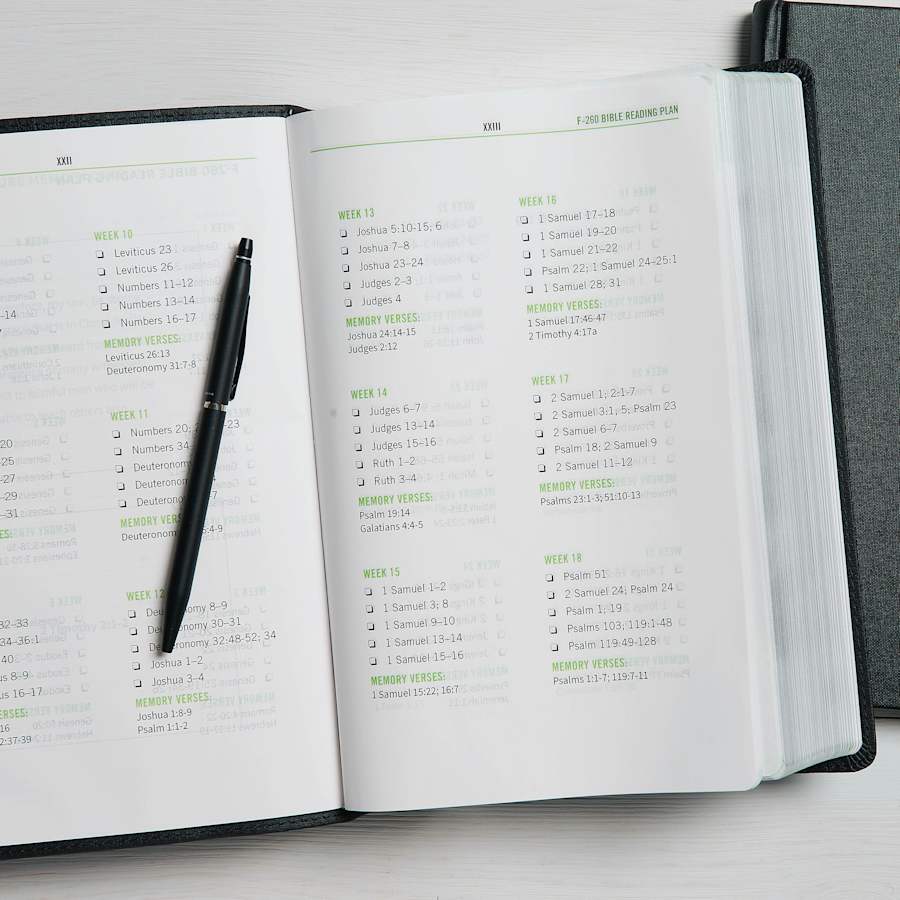 XXII
20
WEEK 10
Leviticus 23
Leviticus 26
Numbers 11–12
Numbers 13–14
Numbers 16–17
MEMORY VERSES:
Leviticus 26:13
Deuteronomy 31:7-8
WEEK 11
Numbers 20;
Numbers
MEMORY
WEEK 12
8–9
30–31
32:48-52; 34
Joshua 1–2
Joshua 3–4
MEMORY VERSES:
Joshua 1:8-9
Psalm 1:1-2
XXIII
F-260 BIBLE READING PLAN
WEEK 13
Joshua 5:10-15; 6
Joshua 7–8
Joshua 23–24
Judges 2–3
Judges 4
MEMORY VERSES:
Joshua 24:14-15
Judges 2:12
WEEK 14
Judges 6–7
Judges 13–14
Judges 15–16
Ruth 1–2
Ruth 3–4
MEMORY VERSES:
Psalm 19:14
Galatians 4:4-5
WEEK 15
1 Samuel 1–2
1 Samuel 3; 8
1 Samuel 9–10
1 Samuel 13–14
1 Samuel 15–16
MEMORY VERSES:
1 Samuel 15:22; 16:7
WEEK 16
1 Samuel 17–18
1 Samuel 19–20
1 Samuel 21–22
Psalm 22; 1 Samuel 24–25:1
1 Samuel 28; 31
MEMORY VERSES:
1 Samuel 17:46-47
2 Timothy 4:17a
WEEK 17
2 Samuel 1; 2:1-7
2 Samuel 3:1, 5; Psalm 23
2 Samuel 6–7
Psalm 18; 2 Samuel 9
2 Samuel 11–12
MEMORY VERSES:
Psalms 23:1-3; 51:10-13
WEEK 18
Psalm 51
2 Samuel 24; Psalm 24
Psalm 1; 19
Psalms 103; 119:1-48
Psalm 119:49-128
MEMORY VERSES:
Psalms 1:1-7; 119:7-11